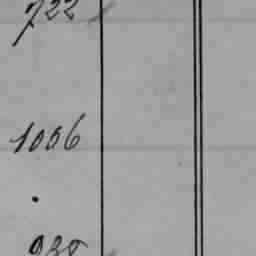 722
1006
938